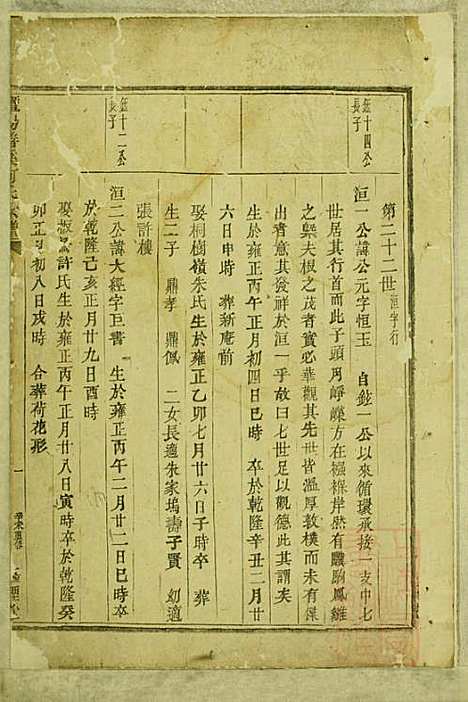 第二十二世 洹字行
鉉十四公長子
洹一公諱公元字恒玉 自鉉一公以來循環承接一支中七
世居其行首而此子頭角崢嶸方在襁褓岸然有驥駒鳳雛
之槩夫根之茂者實必華觀其先世皆溫厚敦樸而未有傑
出者意其發祥於洹一乎故曰七世足以觀德此其謂矣
生於雍正丙午正月初四日巳時 卒於乾隆辛丑二月廿
六日申時 葬新庵前
娶桐樹嶺朱氏生於雍正乙卯七月廿六日子時卒 葬
生二子 鼎孝 鼎佩 二女長適朱家塢壽子賢 幼適
張許樓
鉉十二公長子
洹二公諱大經字臣書 生於雍正丙午二月廿二日巳時卒
於乾隆己亥正月廿九日酉時
娶 許氏生於雍正丙午正月廿八日寅時卒於乾隆癸
卯正月初八日戌時 合葬荷花形
一